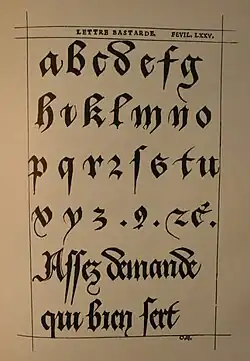 LETTRE BASTARDE. FEVIL. LXXV.
a b c d e f g
h i k l m n o
p q r ꝛ ſ s t u
v y z . 9 . ꝛc̃ .
Assez demande
qui bien sert